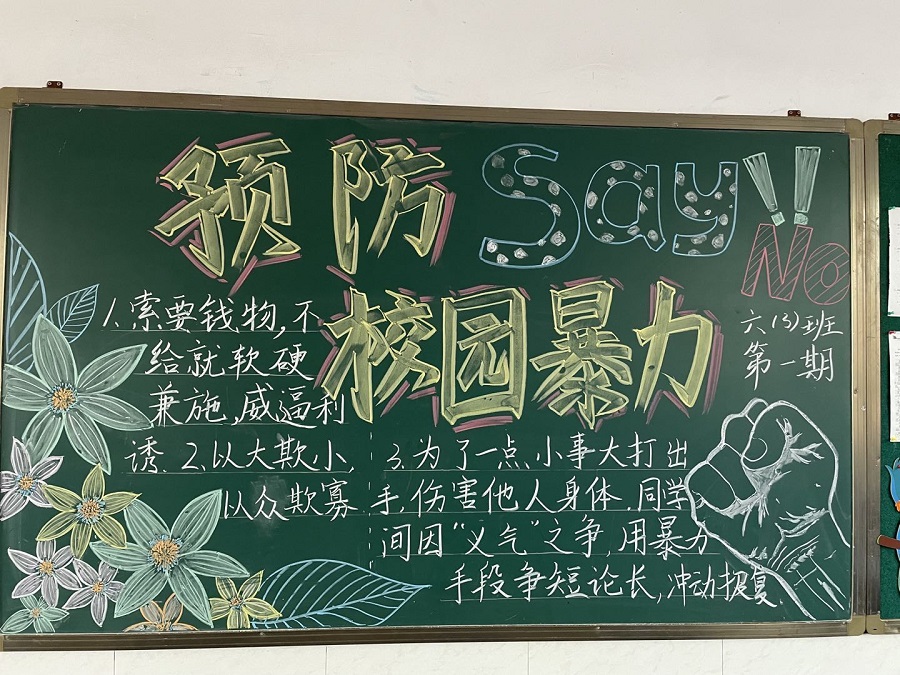 预防 Say No!!
校园暴力
六(3)班
第一期
1.索要钱物,不
给就软硬
兼施,威逼利
诱.2.以大欺小,
以众欺寡
3.为了一点小事大打出
手,伤害他人身体.同学
间因“义气”之争,用暴力
手段争短论长,冲动报复